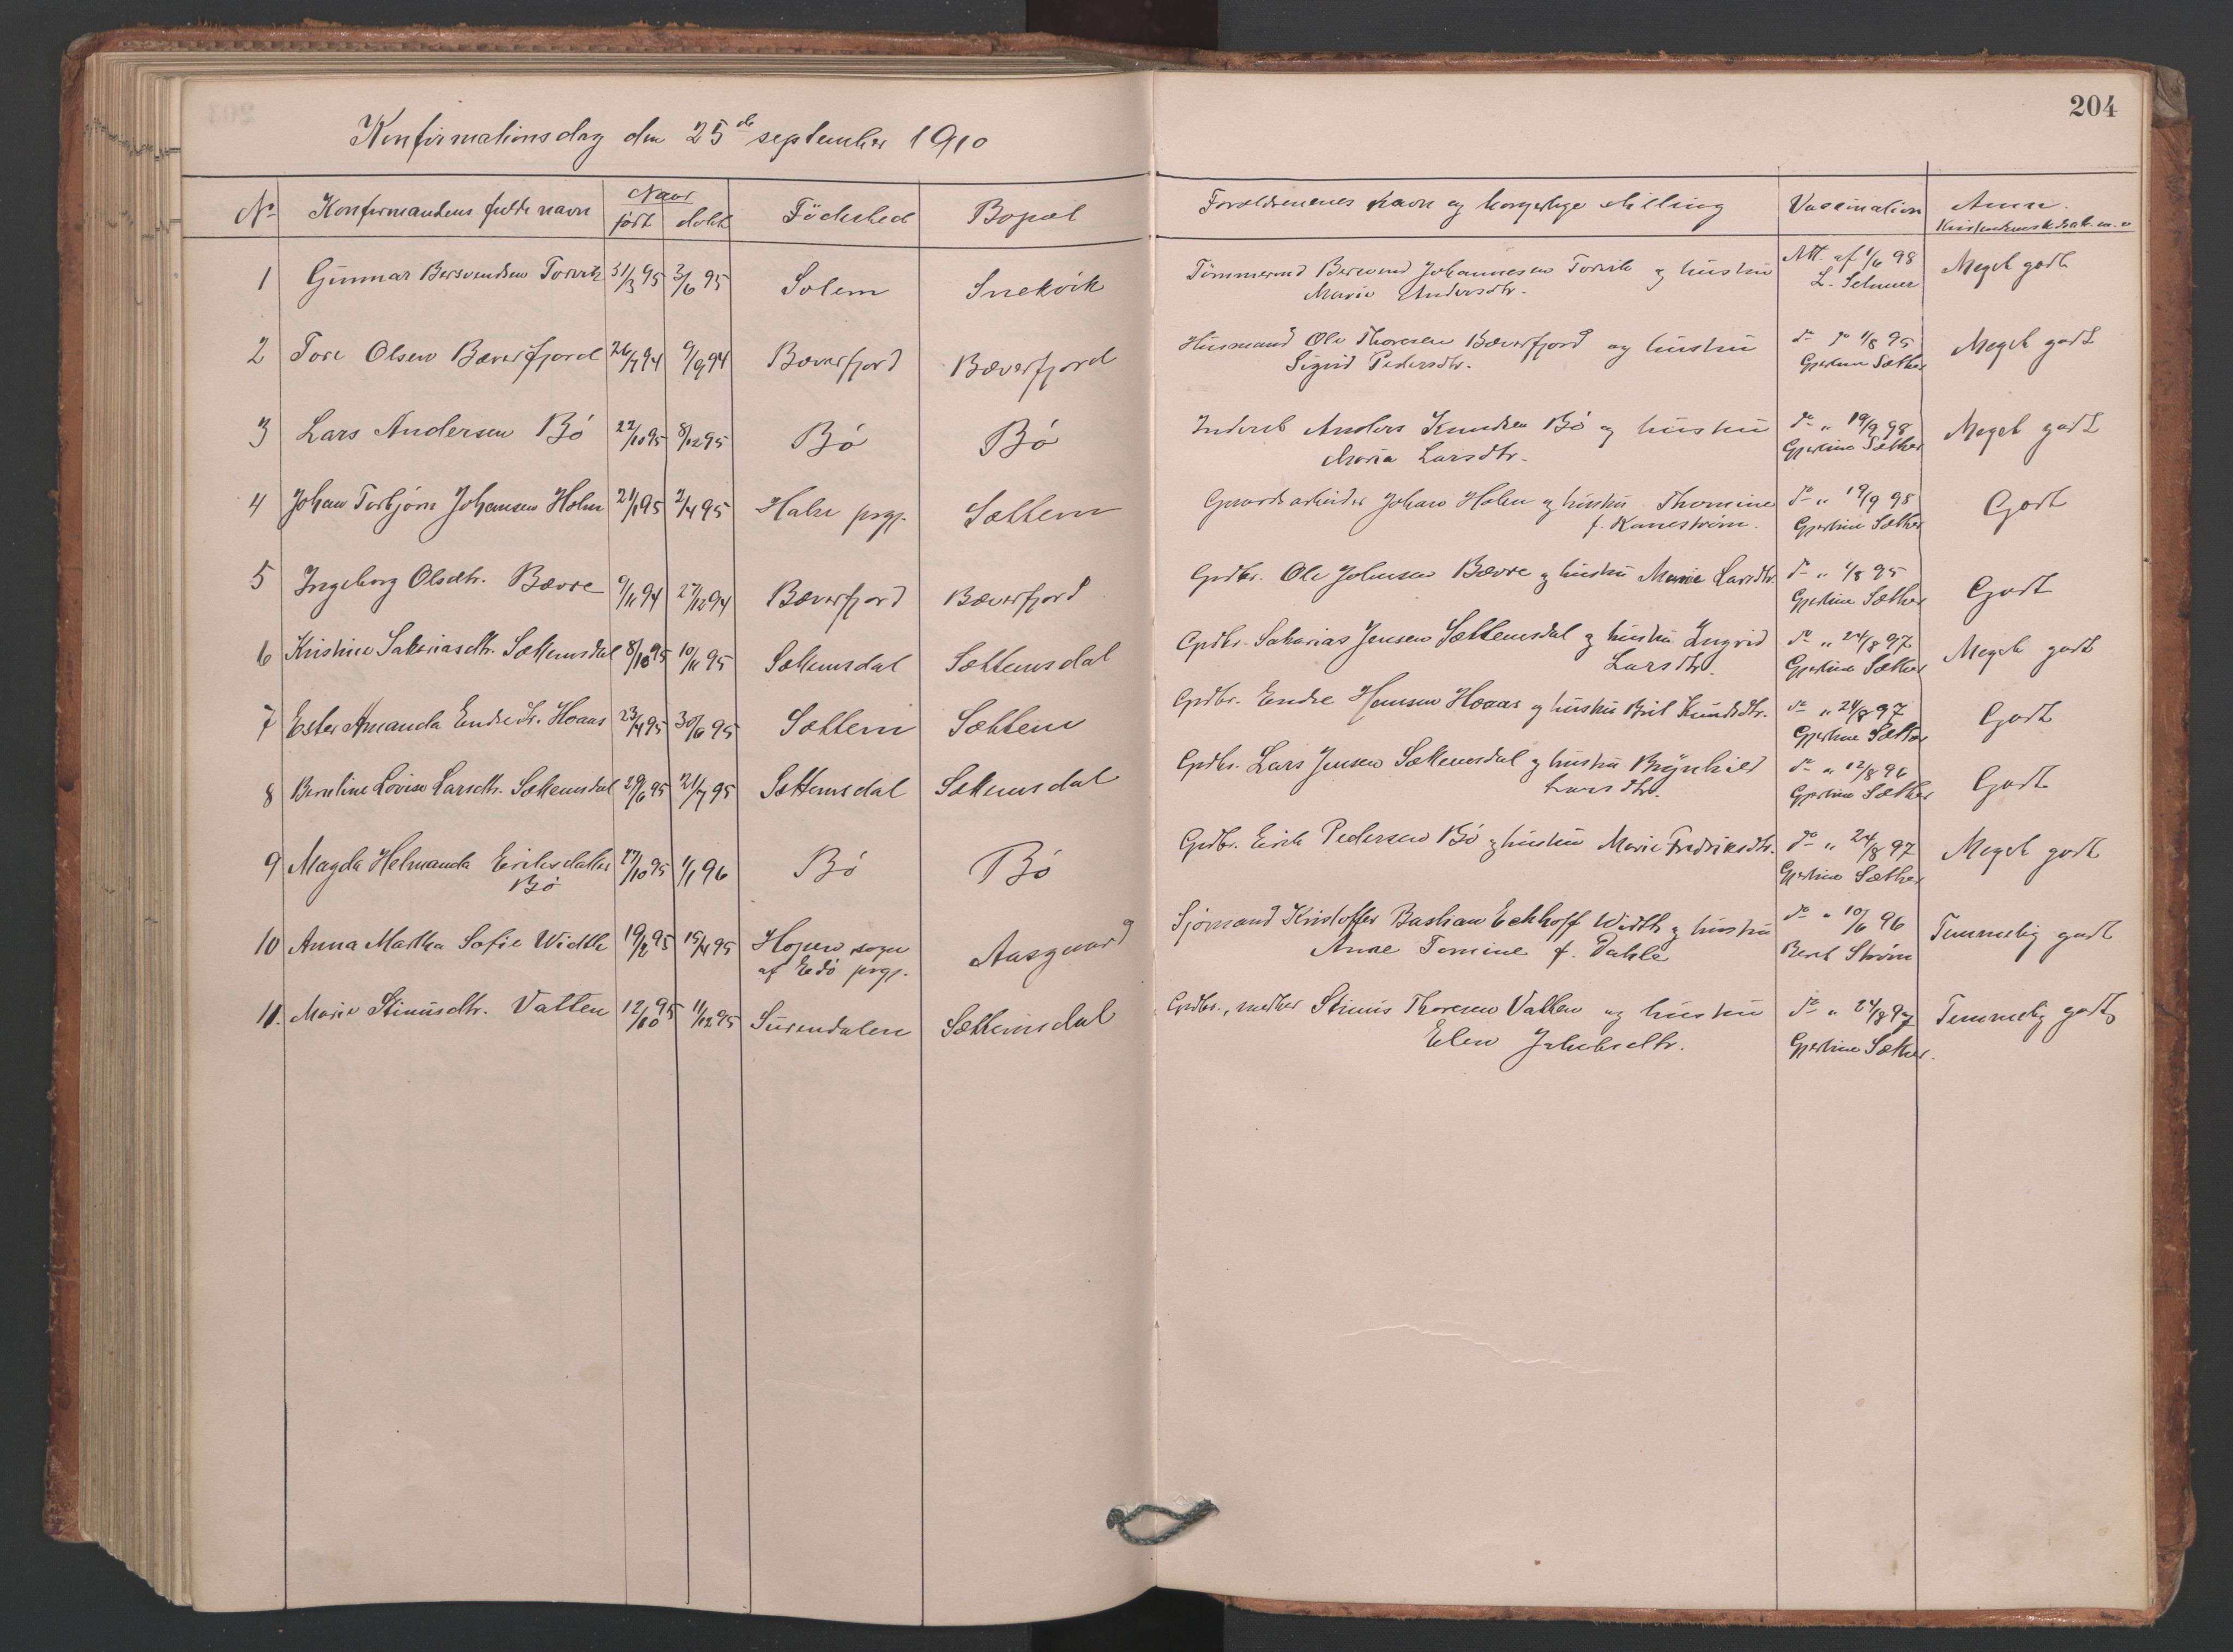 204
Konfirmationsdag den 25de september 1910
No Konfirmandens fulde navn Naar født døbt Födested Bopæl Forældrenenes navn og borgerlige stilling Vaccination Anm. Kristendomskundsk. m. v
1 Gunnar Bersvendsen Torvik 31/3 95 3/6 95 Solem Snekvik Tømmermd Bersvend Johannesen Torvik og hustru Att. af 1/6 98 Meget godt
Marie Andersdtr. L. Selmer
2 Tore Olsen Bæverfjord 26/7 94 9/9 94 Bæverfjord Bæverfjord Husmand Ole Thoresen Bæverfjord og hustru do do 1/8 95 Meget godt
Sigrid Pedersdtr. Gjertine Sæther
3 Lars Andersen Bö 22/10 95 8/12 95 Bö Bö Inderst Anders Knudsen Bö og hustru do " 19/9 98 Meget godt
Maria Larsdtr. Gjertine Sæther
4 Johan Torbjörn Johansen Holm 21/1 95 2/4 95 Halse prgj. Sættem Gaardsarbeider Johan Holm og hustru Thomine do " 19/9 98 Godt
f. Kanestrøm. Gjertine Sæther
5 Ingeborg Olsdtr. Bævre 9/11 94 27/12 94 Bæverfjord Bæverfjord Grdbr. Ole Johnsen Bævre og hustru Marie Larsdtr. do " 1/8 95 Godt
Gjertine Sæther
6 Kristine Sakariasdtr. Sættemsdal 8/10 95 10/11 95 Sættemsdal Sættemsdal Grdbr. Sakarias Jensen Sættemsdal og hustru Ingrid do " 24/8 97 Meget godt
Larsdtr. Gjertine Sæther
7 Ester Amanda Endredtr. Hoaas 23/4 95 30/6 95 Sættem Sættem Grdbr. Endre Hansen Hoaas og hustru Brit Knudsdtr. do " 24/8 97 Godt
Gjertine Sæther
8 Berntine Lovise Larsdtr. Sættemsdal 29/6 95 21/7 95 Sættemsdal Sættemsdal Grdbr. Lars Jensen Sættemsdal og hustru Brynhild do " 12/8 96 Godt
Larsdtr. Gjertine Sæther
9 Magda Helmanda Eriksdatter 27/10 95 1/1 96 Bö Bö Grdbr. Erik Pedersen Bö og hustru Marie Fredriksdtr. do " 24/8 97 Meget godt
Bö Gjertine Sæther
10 Anna Martha Sofie Width 19/2 95 15/4 95 Hopen sogn Aasgaard Sjømand Kristoffer Bastian Eckhoff Width og hustru do " 10/6 96 Temmelig godt
af Edö prgj. Anne Tomine f. Dahle Berit Strøm
11. Marie Stinusdtr. Vatten 12/10 95 11/12 95 Surendalen Sættemsdal Grdbr., Stinus Thoresen Vatten og hustru do " 24/8 97 Temmelig godt
Elen Jakobsdtr. Gjertine Sæther.